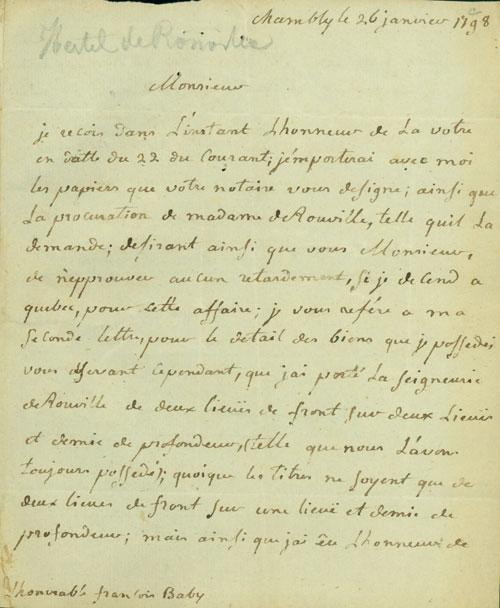 Chambly le 26 janvier 1798
Hertel de Rouville
Monsieur
je recois dans L'instant Lhonneur de La votre
en datte du 22 du Courant; j'emporterai avec moi
les papiers que votre notaire vous designe; ainsi que
La procuration de madame de Rouville, telle quil La
demande; desirant ainsi que vous Monsieur,
de n'epprouver aucun retardement, si je decend a
quebec, pour cette affaire; je vous refére a ma
seconde lettre, pour le detail des biens que je possedes
vous observant cependant, que jai porté La seigneurie
de Rouville de deux lieuës de front sur deux Lieuës
et demie de profondeur, telle que nous L'avons
toujours possedés; quoique les titres ne soyent que de
deux lieues de front sur une lieuë et demie de
profondeur; mais ainsi que jai eu Lhonneur de
L'honorable francois Baby